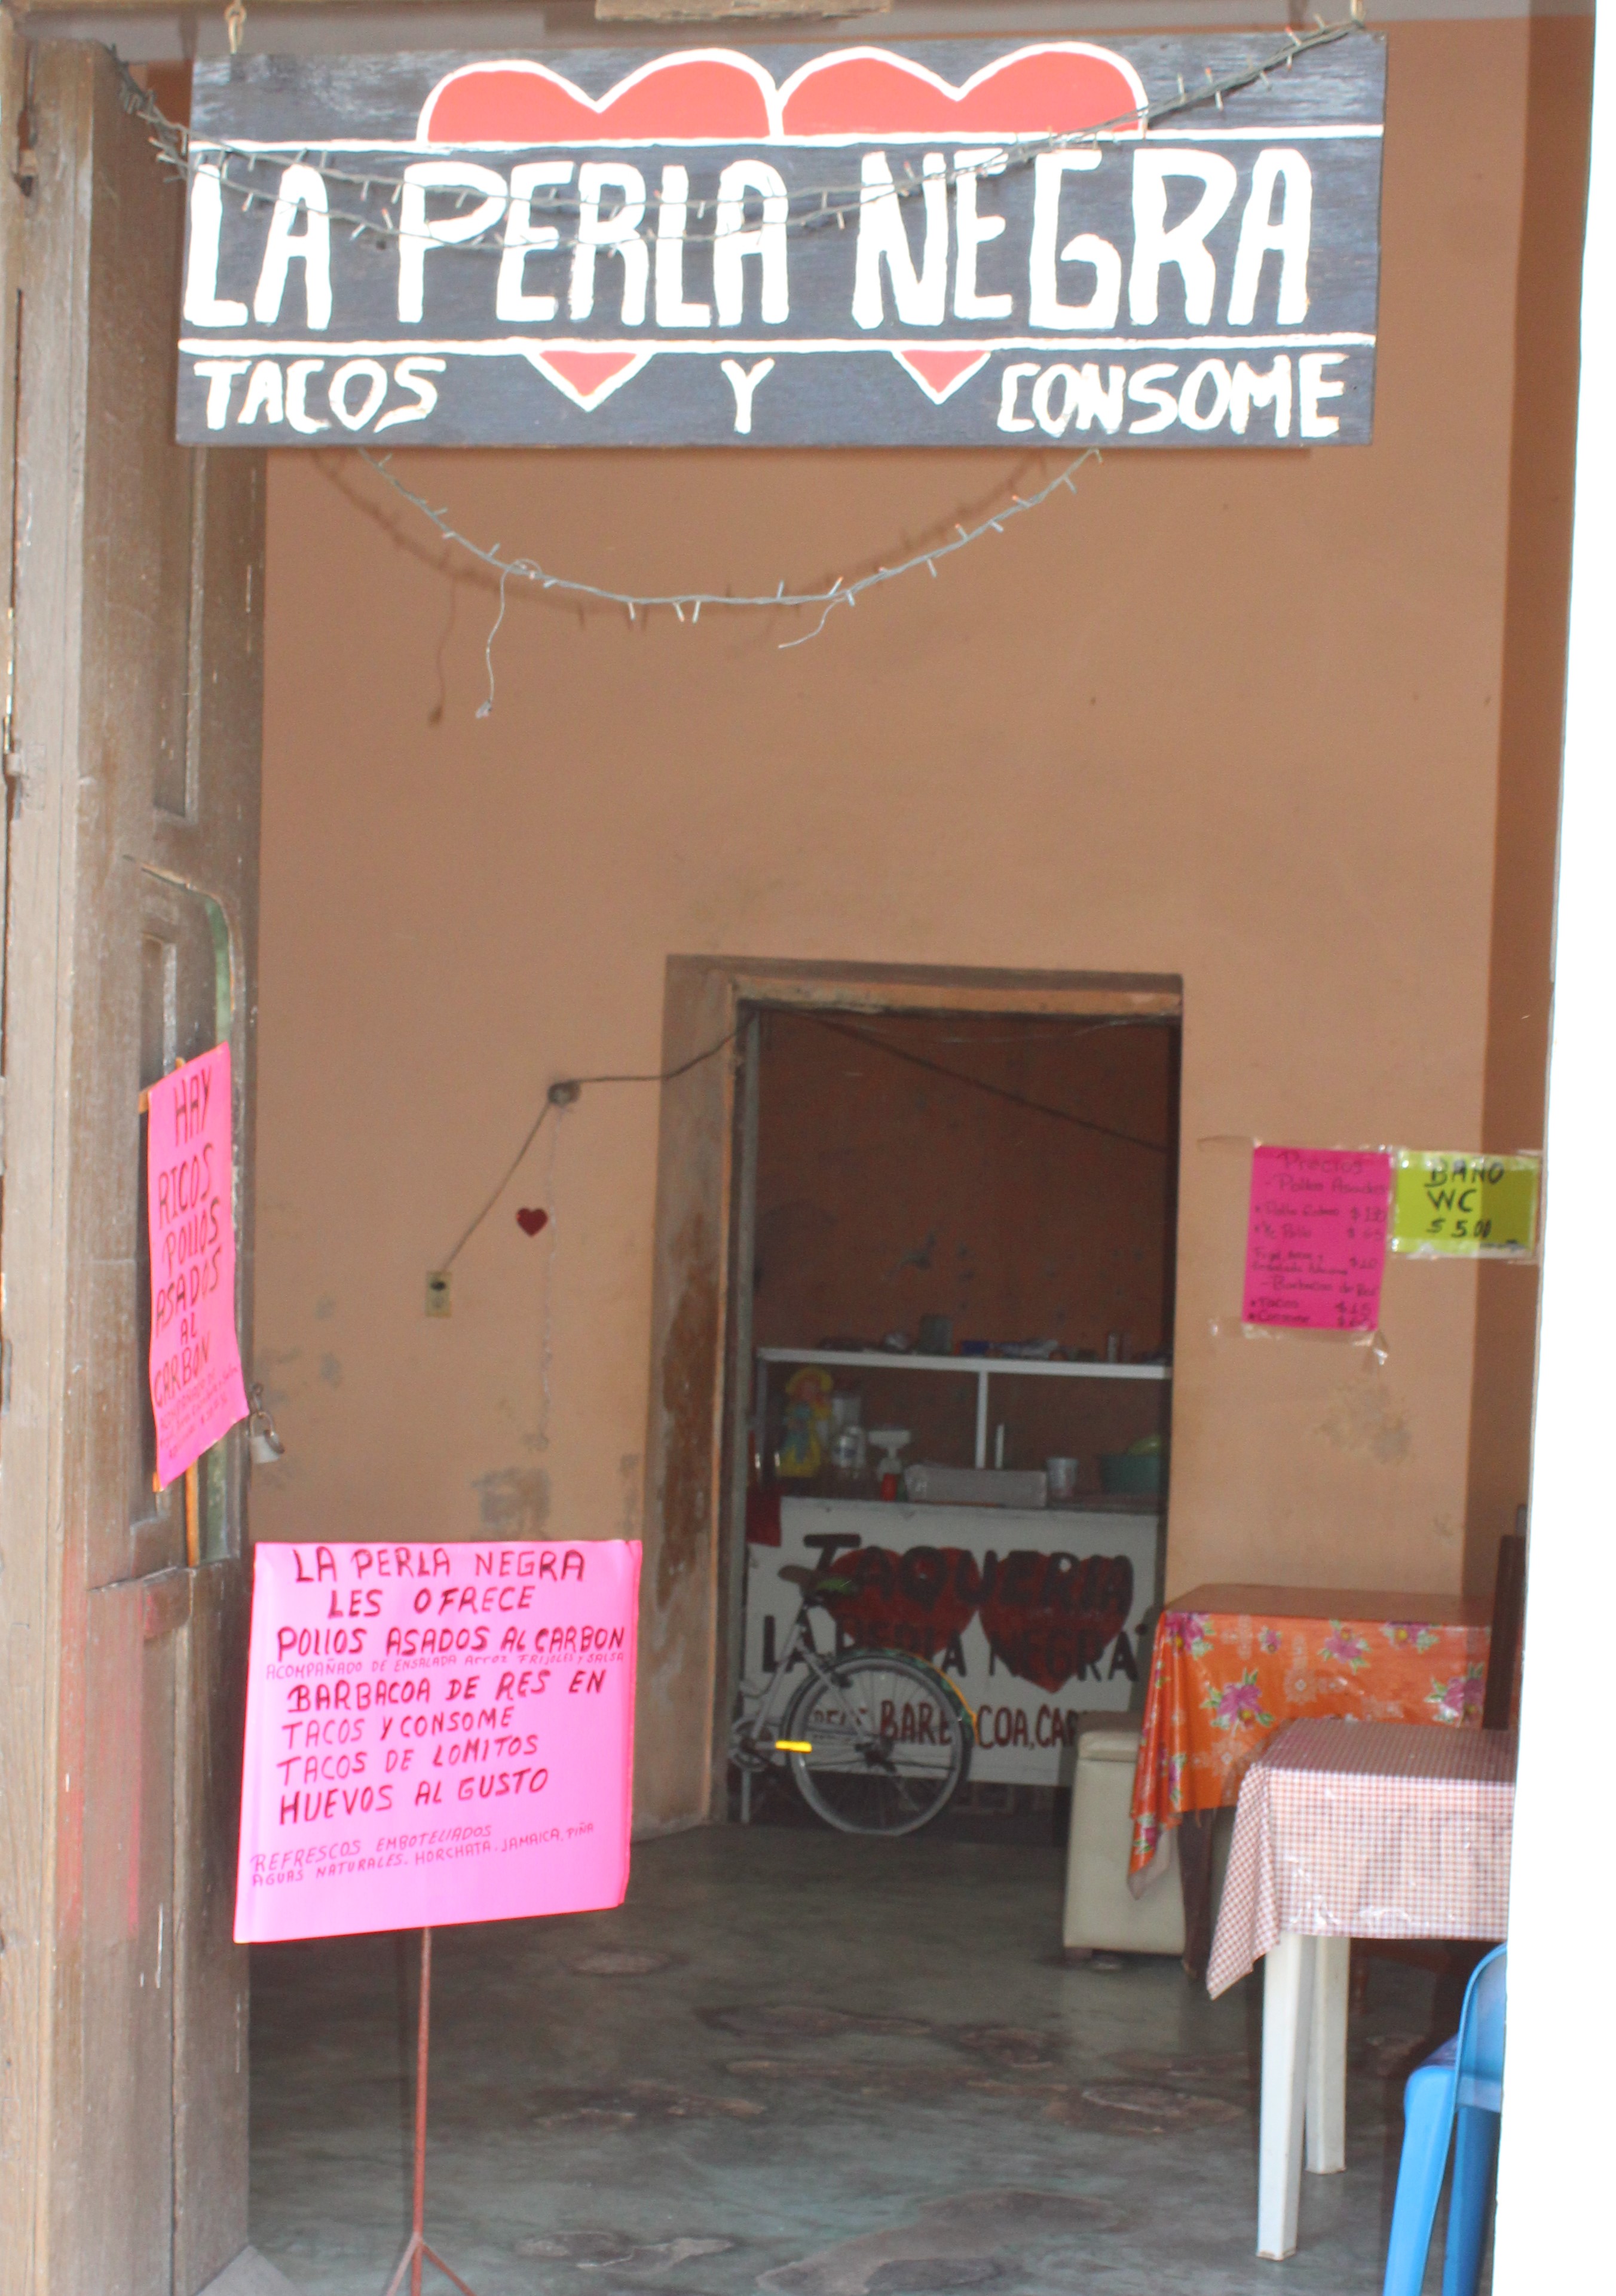 LA PERLA NEGRA
TACOS Y CONSOME
HAY
RICOS
POLLOS
ASADOS
AL
CARBON
Precios
- Pollos Asados
BAÑO
WC
$ 5.00
- Barbacoa de Res
• Tacos $15
• Consome
LA PERLA NEGRA
LES OFRECE
POllOS ASADOS AL CARBON
ACOMPAÑADO DE ENSALADA Arroz FRIJOLES Y SALSA
BARBACOA DE RES EN
TACOS Y CONSOME
TACOS DE LOMITOS
HUEVOS AL GUSTO
REFRESCOS EMBOTELLADOS
AGUAS NATURALES. HORCHATA. JAMAICA. PIÑA
TAQUERIA
LA PERLA NEGRA"